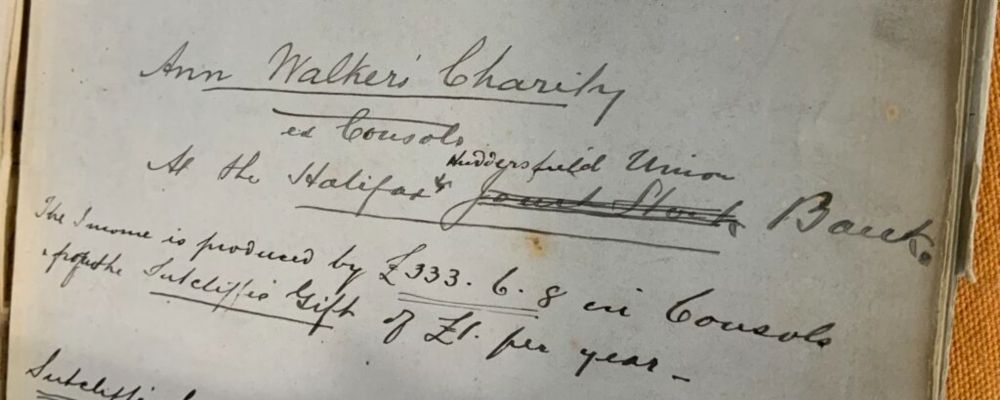 Ann Walker's Charity
ex Consols
Huddersfield Union
At the Halifax & Joint Stock Bank.
The Income is produced by £333. 6. 8 in Consols
& from the Sutcliffe's Gift of £1. per year -
Sutcliffe's